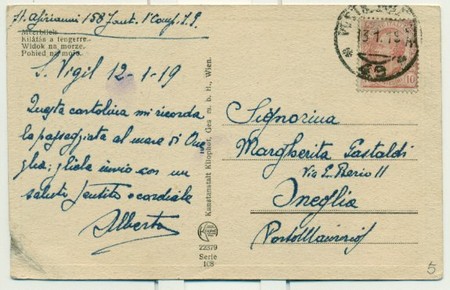 At. Afrianni 158 Fant. 1 Comp. I. P.
Meerblick.
Kilátás a tengerre.
Widok na morze.
Pohled na moře.
S. Vigil 12-1-19
Questa cartolina mi ricorda
la passeggiata al mare di One
glia; gliela invio con un
saluto sentito e cordiale
Alberto
Kunstanstalt Kilophot, Ges. m. b. H., Wien.
22379
Serie
108
13.1.19
10
Signorina
Margherita Gastaldi
Via E. Berio 11
Oneglia
Porto Maurizio
5